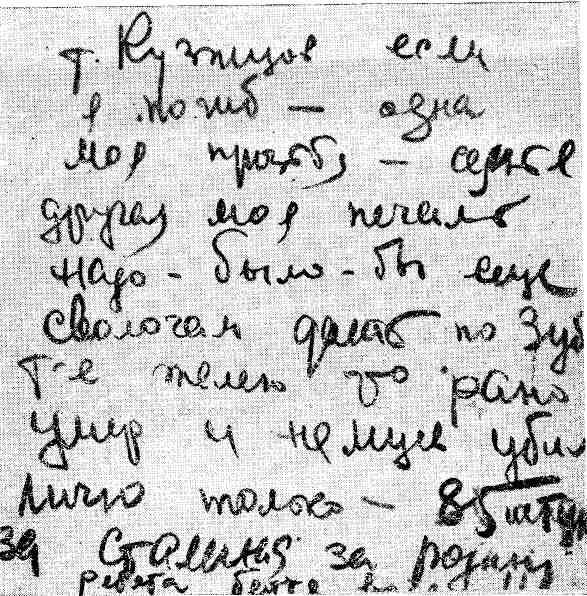 т. Кузнецов если
я погиб — одна
моя просьба — семья
другая моя печаль
надо-было-бы еще
сволочам дать по зуб
т-е жалею что рано
умер и немцев убил
лично только — 85 штук
за Сталина за родину
ребята бейте